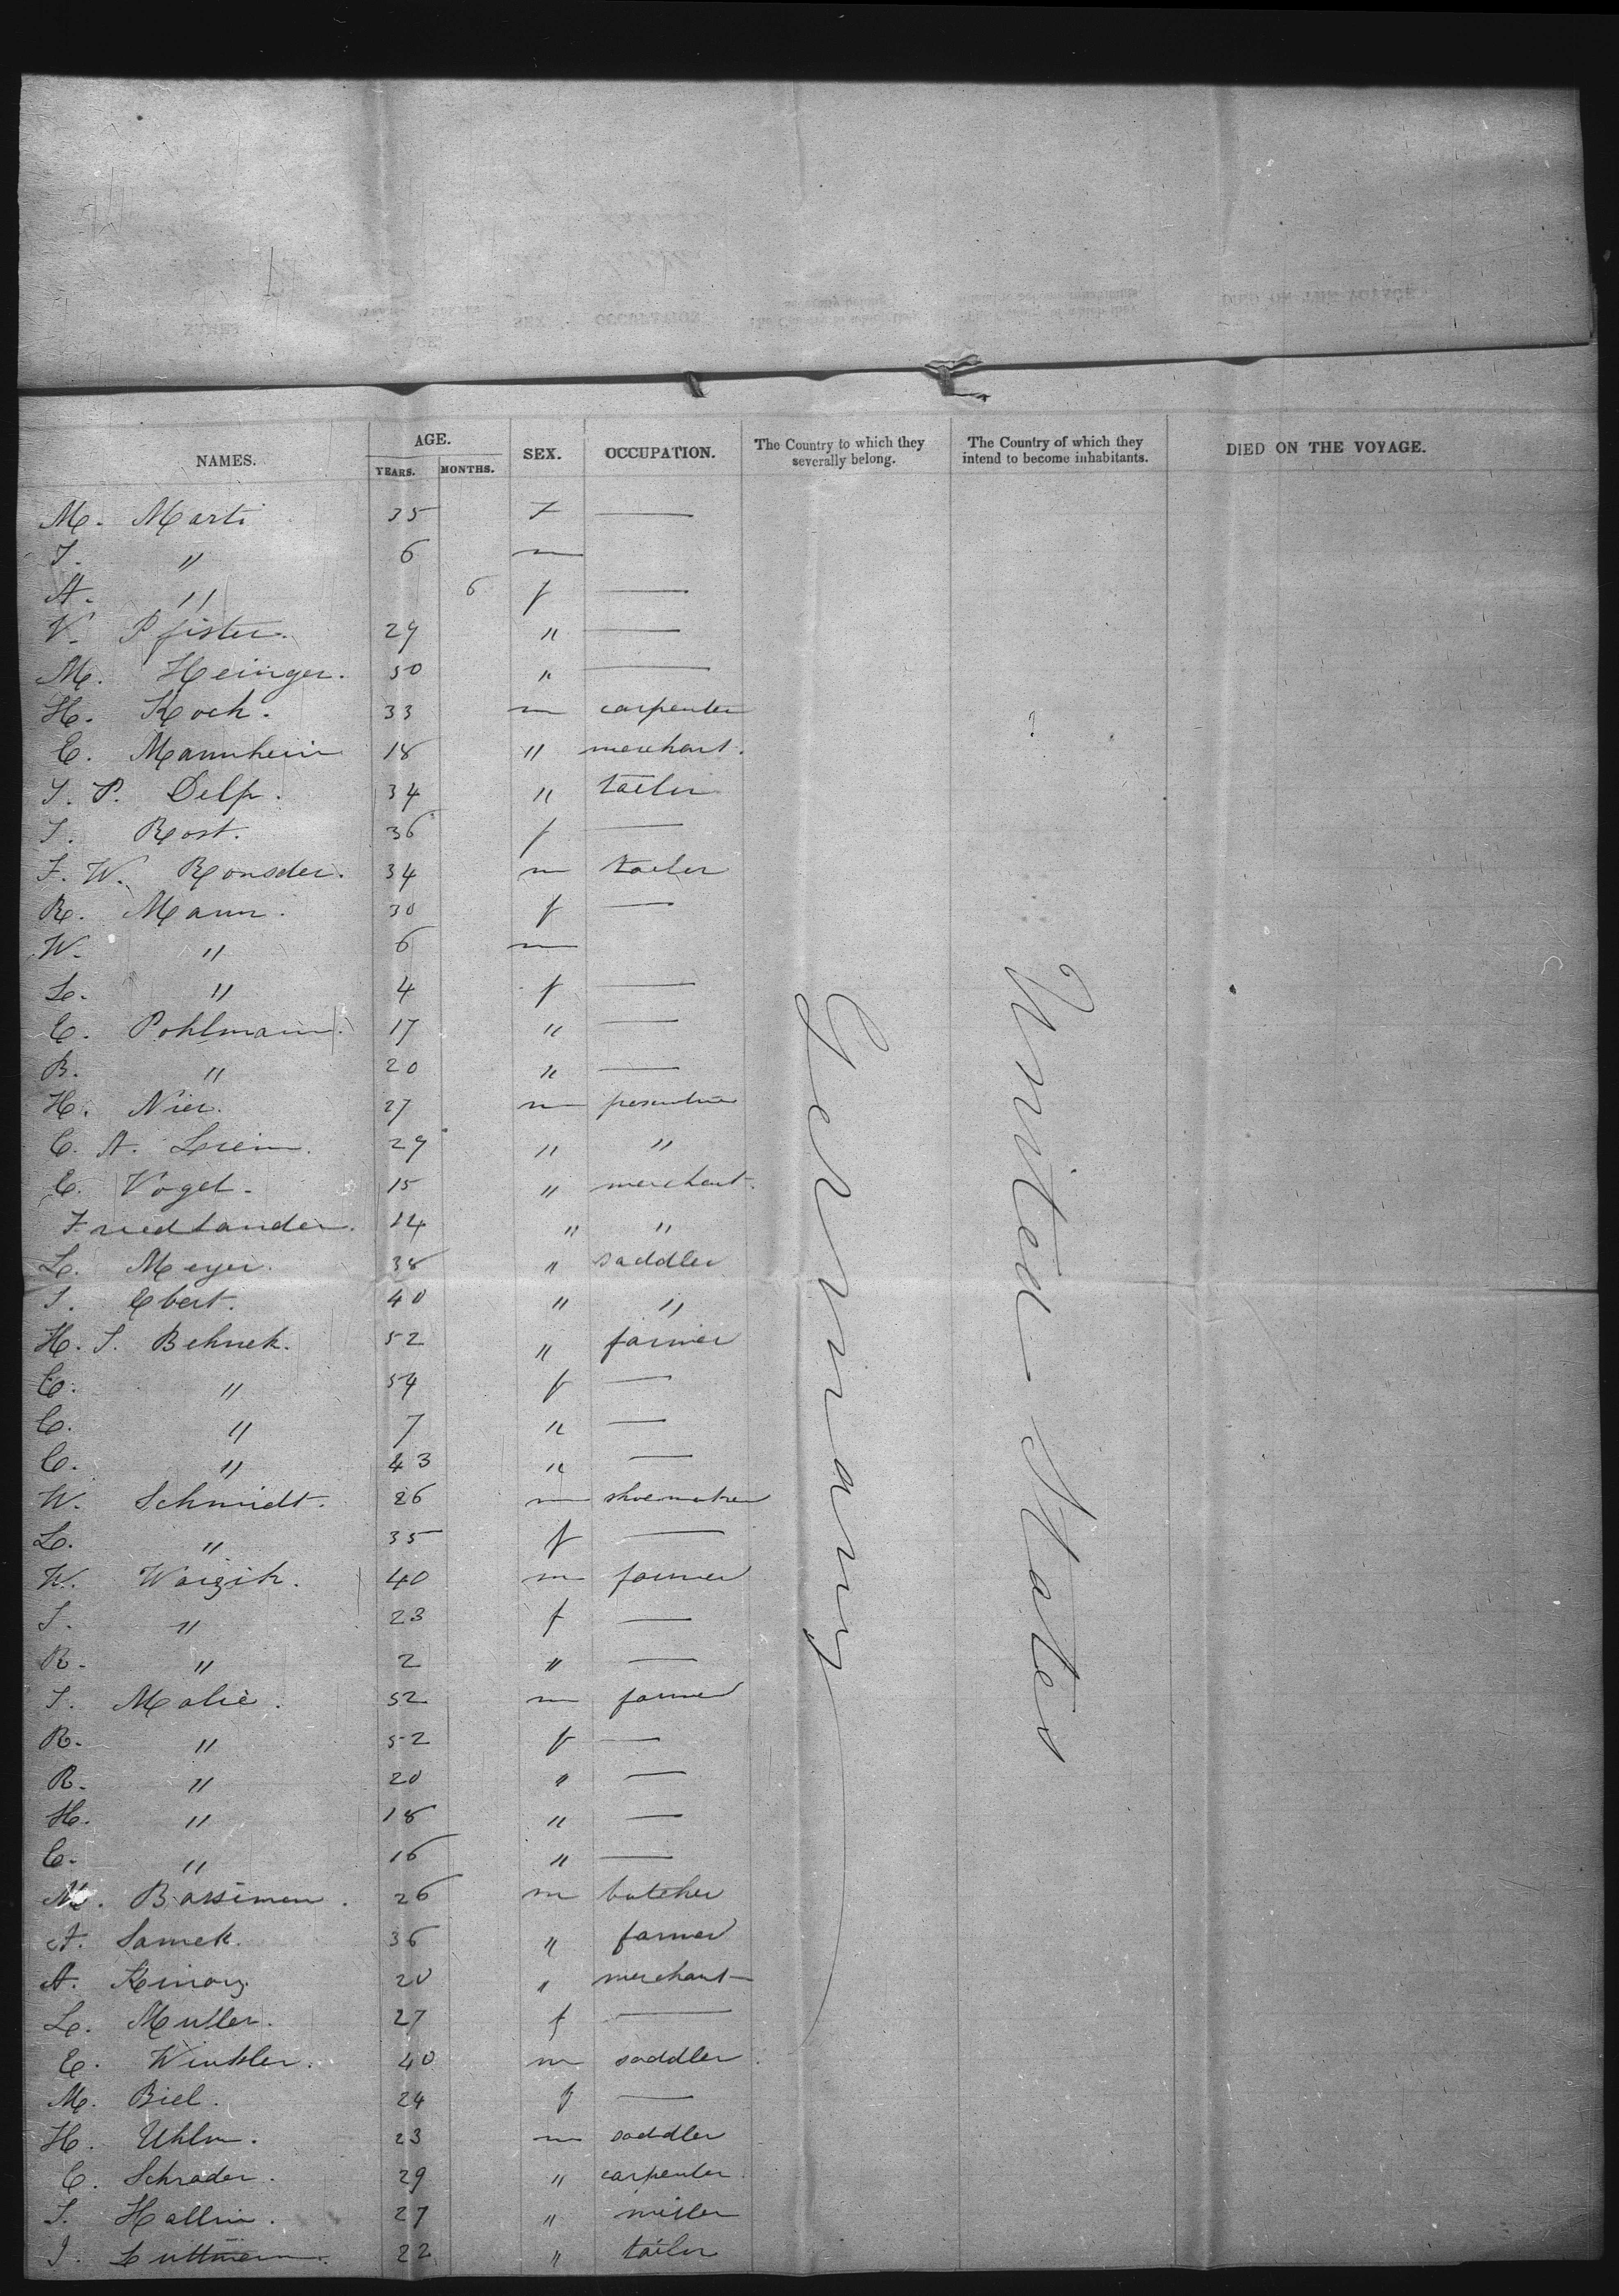 NAMES. AGE. SEX. OCCUPATION. The Country to which they severally belong. The Country of which they intend to become inhabitants. DIED ON THE VOYAGE.
YEARS. MONTHS.
M. Marti 35 f —
J. " 6 m
A. " 6 f —
V. Pfister. 29 " —
M. Heinger. 50 " —
H. Koch. 33 m carpenter
C. Mannheim 18 " merchant.
J. P. Delp. 34 " tailor
J. Rost. 36 f —
F. W. Ronsder. 34 m tailor
R. Mann. 30 f —
W. " 6 m
L. " 4 f —
E. Pohlmann. 17 " —
B. " 20 " —
H. Nier. 27 m
C. A. 29 " "
E. Vogel. 15 " merchant.
Friedlander. 14 " "
L. Meyer. 38 " saddler
J. Ebert. 40 " "
H. J. Behnek. 52 " farmer
C. " 54 f —
C. " 7 " —
C. " 43 " —
W. Schmidt. 26 m shoemaker
L. " 35 f —
W. Woizik. 40 m farmer
J. " 23 f —
R. " 2 " —
J. Malie. 52 m farmer
R. " 52 f —
R. " 20 " —
H. " 18 " —
C. " 16 " —
M. Barsimen. 26 m butcher
A. Samek. 36 " farmer
A. 20 " merchant
L. Muller. 27 f —
E. Winkler. 40 m saddler.
M. Biel. 24 f —
H. Uhlm. 23 m saddler
C. Schrader. 29 " carpenter.
J. Hallin. 27 " miller
J. Luttmann. 22 " tailor
Germany
United States